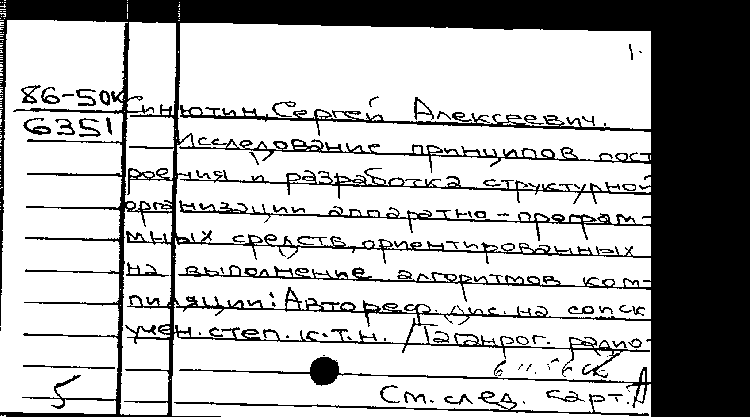 1.
86-50к Синютин, Сергей Алексеевич.
6351
Исследование принципов пост
роения и разработка структурной
организации аппаратно-програм-
мных средств, ориентированных
на выполнение алгоритмов ком-
пиляции: Автореф. дис. на соиск
учен. степ. к.т.н. /Таганрог. радио-
5 См. след. карт.